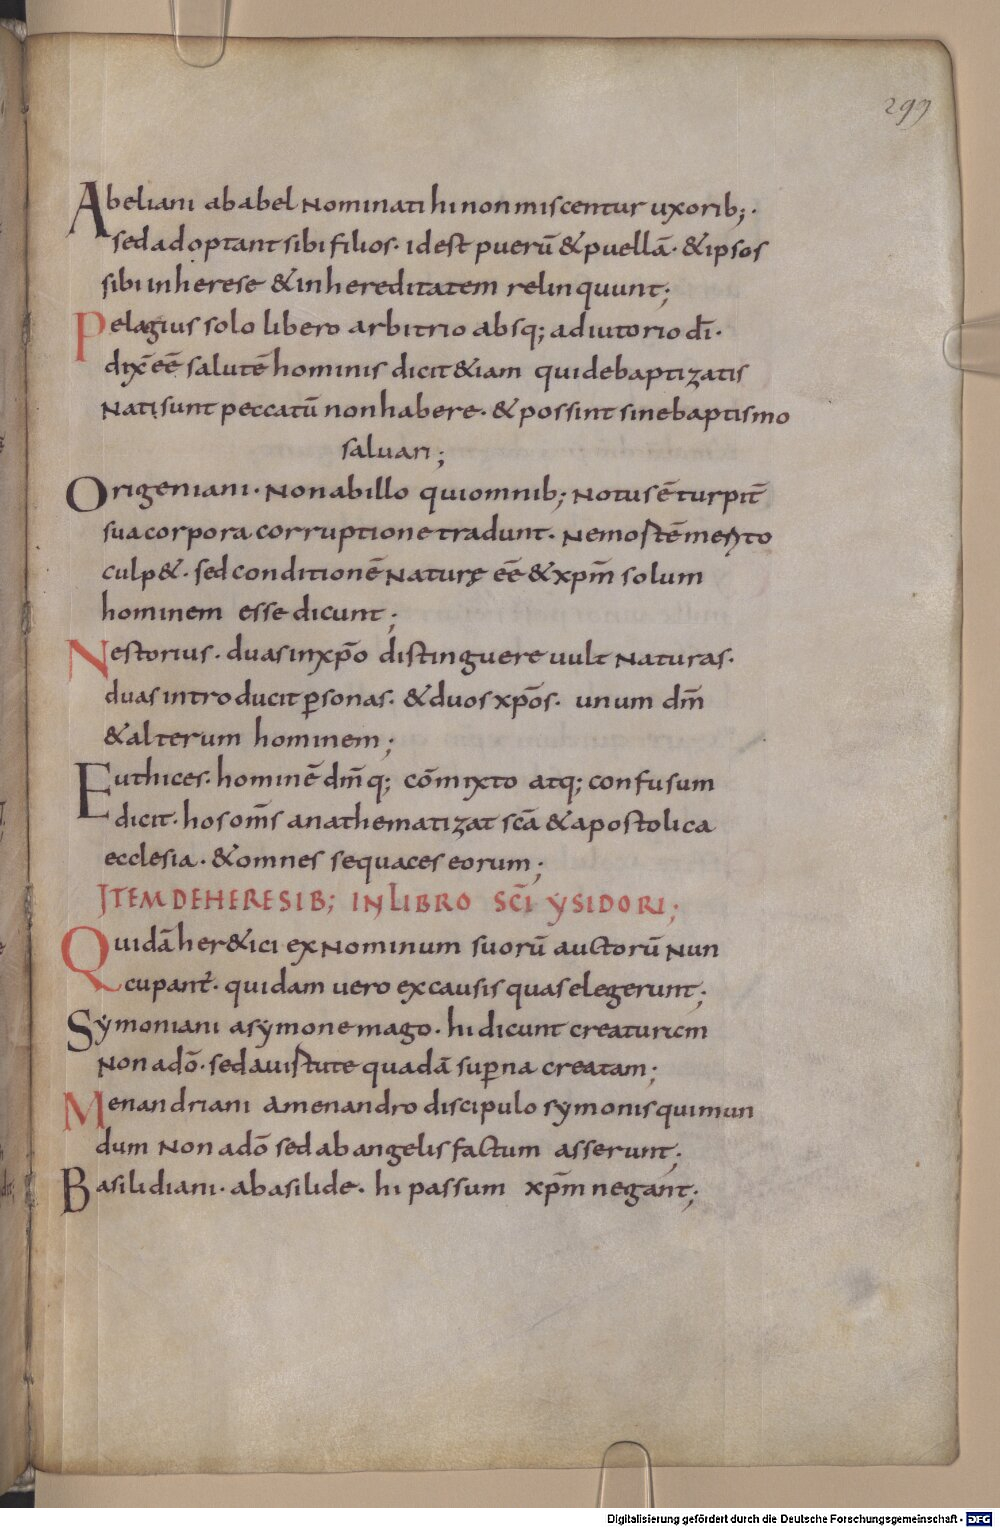 299
Abeliani ab abel Nominati hi non miscentur uxorib;·
sed adoptant sibi filios· id est puerū & puellā· & ipsos
sibi in herese & in hereditatem relinquunt;
Pelagius solo libero arbitrio absq; adiutorio dī·
dix̄ eē salutē hominis dicit & iam qui de baptizatis
Nati sunt peccatū non habere· & possint sine baptismo
saluari;
Origeniani· Non ab illo qui omnib; Notus ē turpit̄
sua corpora corruptione tradunt·
culp&· sed conditionē Naturę eē & xp̄m solum
hominem esse dicunt;
Nestorius· duas in xp̄o distinguere uult Naturas·
duas introducit p̄sonas· & duos xp̄os· unum dm̄
& alterum hominem;
Euthices· hominē dm̄q; cōmixto atq; confusum
dicit· hos om̄s anathematizat scā & apostolica
ecclesia· & omnes sequaces eorum;
ITEM DE HERESIB; IN LIBRO SC̄I YSIDORI;
Quidā her&ici ex Nominum suorū auctorū Nun
cupant̄· quidam uero ex causis quas elegerunt;
Sẏmoniani a sẏmone mago· hi dicunt creaturem
Non a dō· sed a uirtute quadā sup̄na creatam;
Menandriani a menandro discipulo sẏmonis qui mun
dum Non a dō sed ab angelis factum asserunt;
Basilidiani· a basilide· hi passum xp̄m negant;
Digitalisierung gefördert durch die Deutsche Forschungsgemeinschaft - DFG